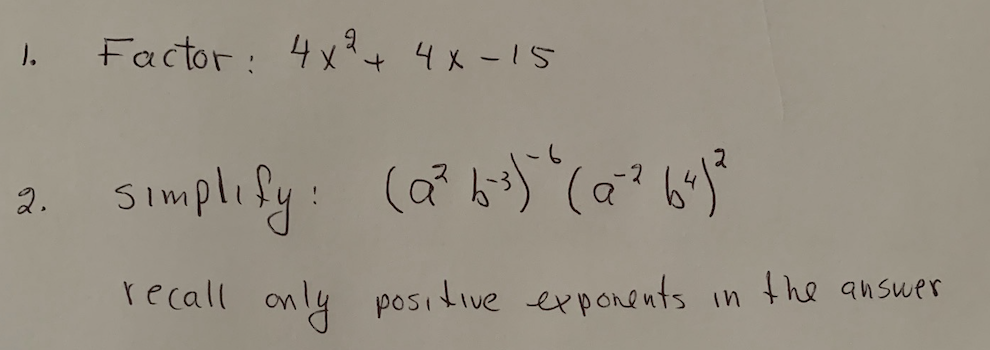 1. Factor: 4x² + 4x - 15
2. simplify: (a² b⁻³)⁻⁶ (a⁻² b⁴)²
recall only positive exponents in the answer